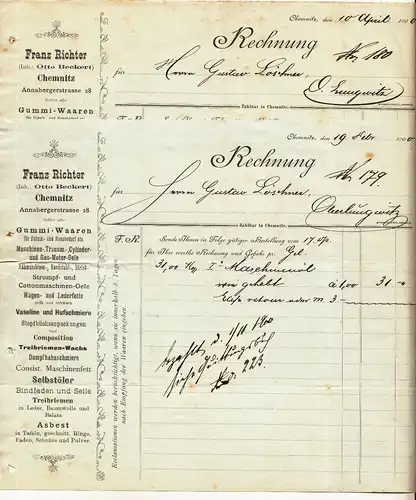 Chemnitz, den 10 April 1900
Franz Richter
(Inh.: Otto Beckert)
Chemnitz
Annabergerstrasse 28
liefert alle
Gummi-Waaren
für Fabrik- und Hausbedarf etc.
Rechnung No 180
für Herrn Gustav Löschner,
O. Lungwitz
Zahlbar in Chemnitz.
Chemnitz, den 19 Febr. 1900
Franz Richter
(Inh.: Otto Beckert)
Chemnitz
Annabergerstrasse 28
liefert alle
Gummi-Waaren
für Fabrik- und Hausbedarf etc.
Maschinen-, Transm.-, Cylinder-
und Gas-Motor-Oele
Strumpf- und
Cottonmaschinen-Oele
Wagen- und Lederfette
gelb und schwarz
Vaseline und Hufschmiere
Stopfbüchsenpackungen
und
Composition
Treibriemen-Wachs
Dampfhahnschmiere
Consist. Maschinenfett
Selbstöler
Bindfaden und Seile
Treibriemen
in Leder, Baumwolle und
Balata
Asbest
in Tafeln, geschnitt. Ringe,
Faden, Schnüre und Pulver.
Reclamationen werden berücksichtigt, wenn sie innerhalb 8 Tagen
nach Empfang der Waaren eingehen
Rechnung No 179.
für Herrn Gustav Löschner,
Oberlungwitz
Zahlbar in Chemnitz.
F. R. Sende Ihnen in Folge gütiger Bestellung vom 17 ds.
für Ihre werthe Rechnung und Gefahr pr. Gel.
31,00 Kg Ia Maschinenöl
à 1,00 31 -
retour oder M 3 -
No. 223